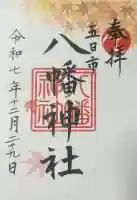 奉拝
五日市
八幡神社
令和七年十二月二十九日